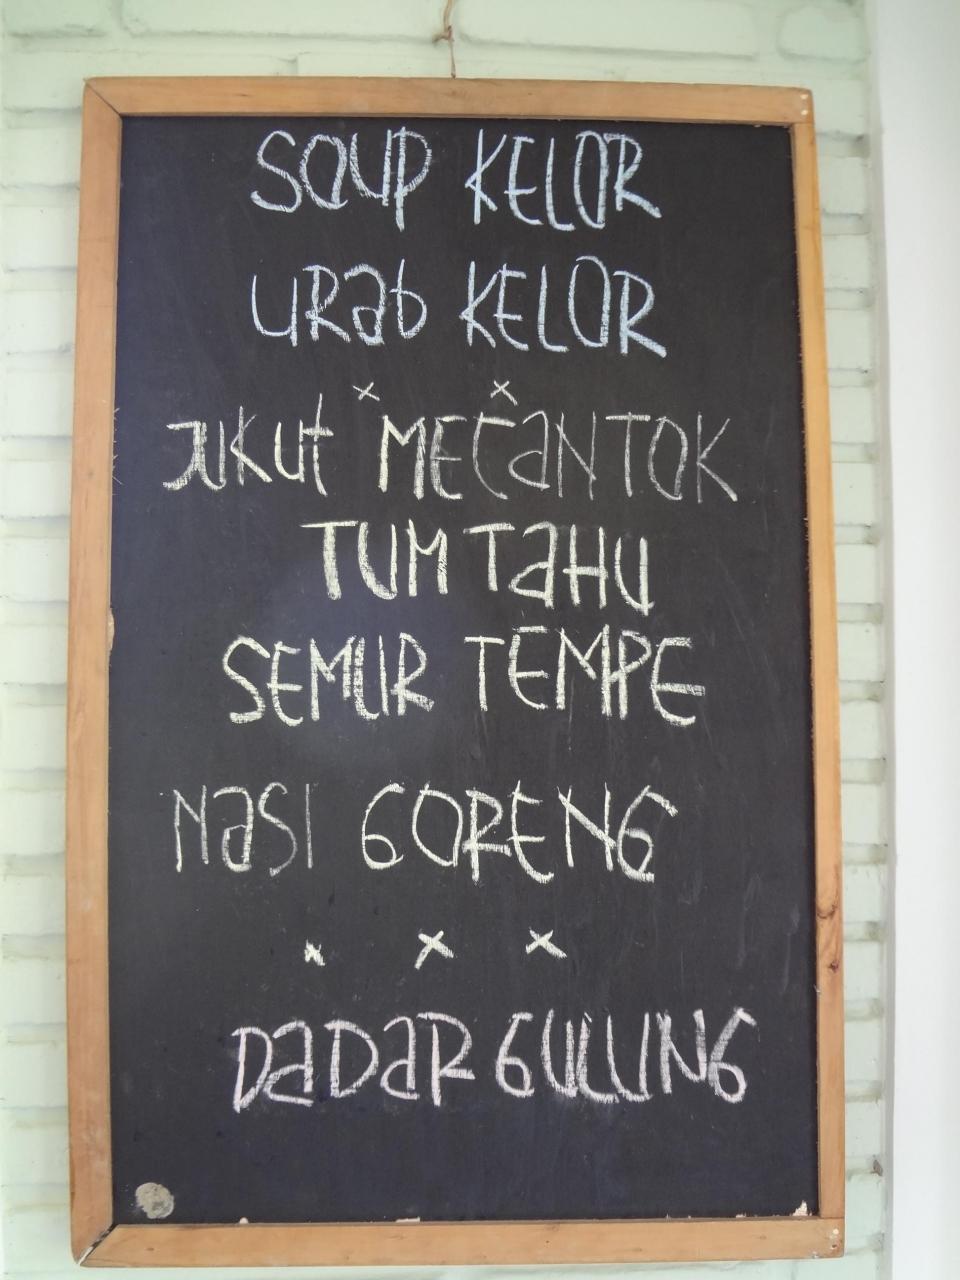 SOUP KELOR
URab KELOR
x x
JUKUt MECaNTOK
TUM TaHU
SEMUR TEMPE
NaSI GORENG
x x x
DaDaR GULUNG